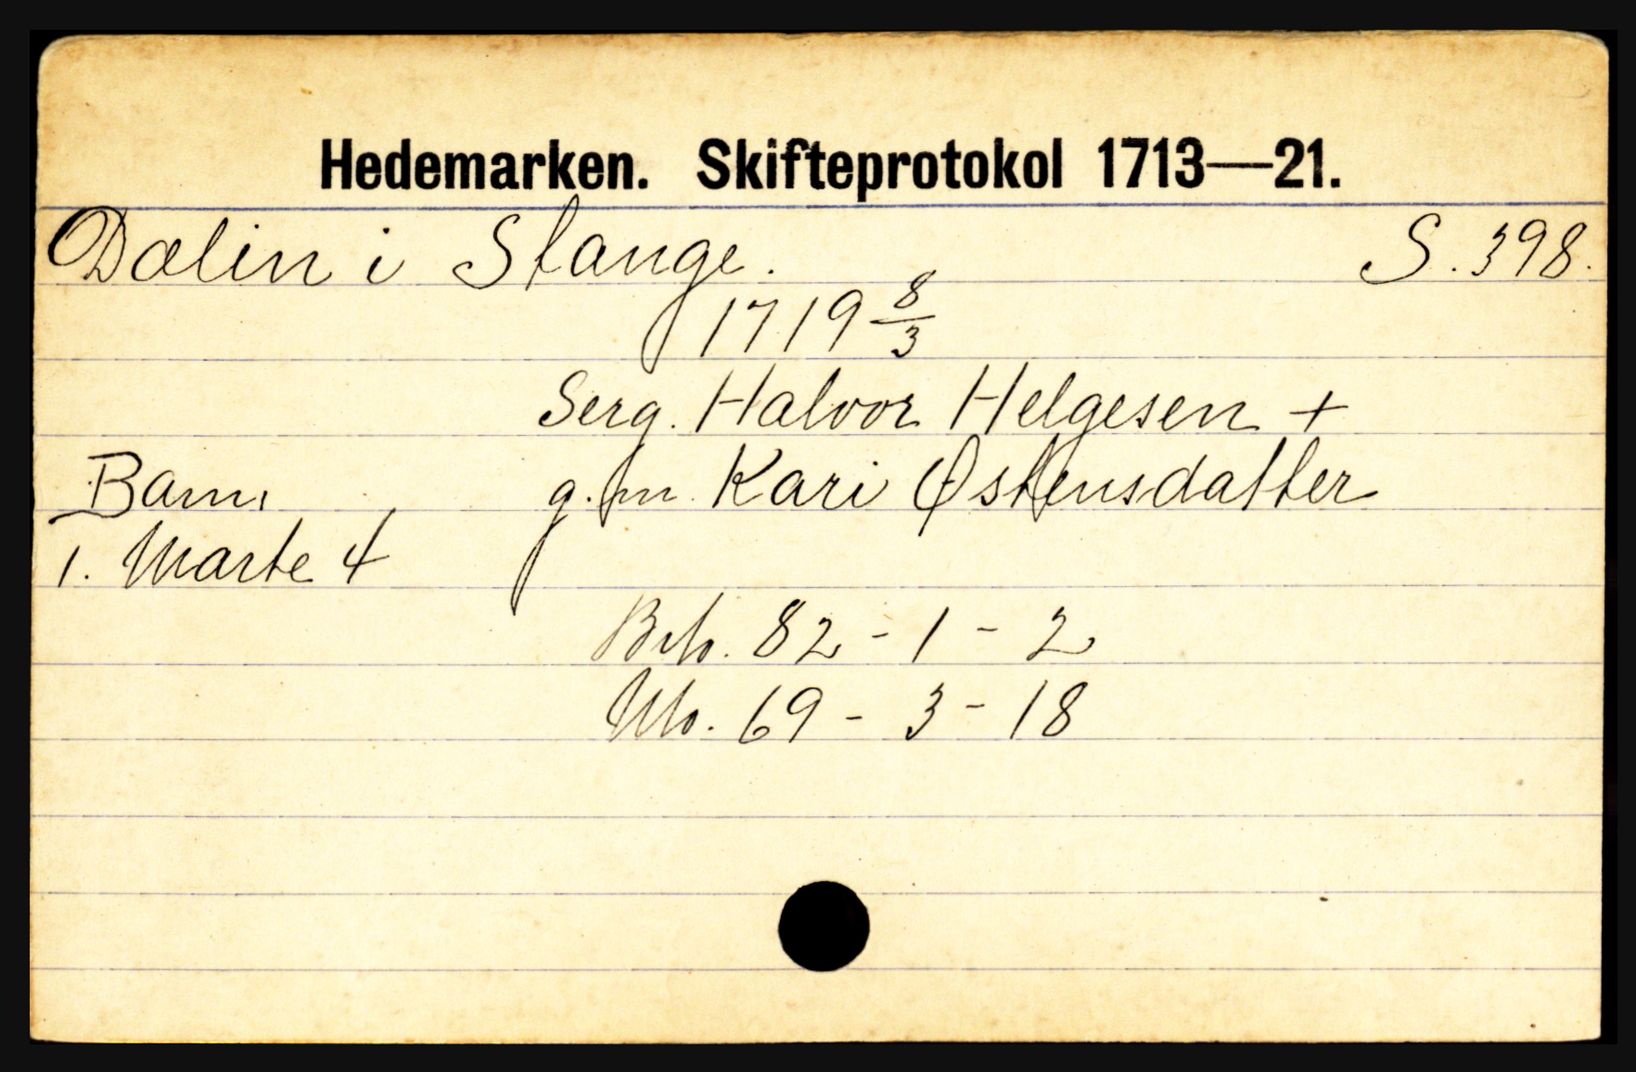 Hedemarken. Skifteprotokol 1713—21.
Dælin i Stange. S. 398.
1719 8/3
Serg. Halvor Helgesen +
g. m. Kari Østensdatter
Barn,
1. Marte 4
Brto. 82 - 1 - 2
Nto. 69 - 3 - 18